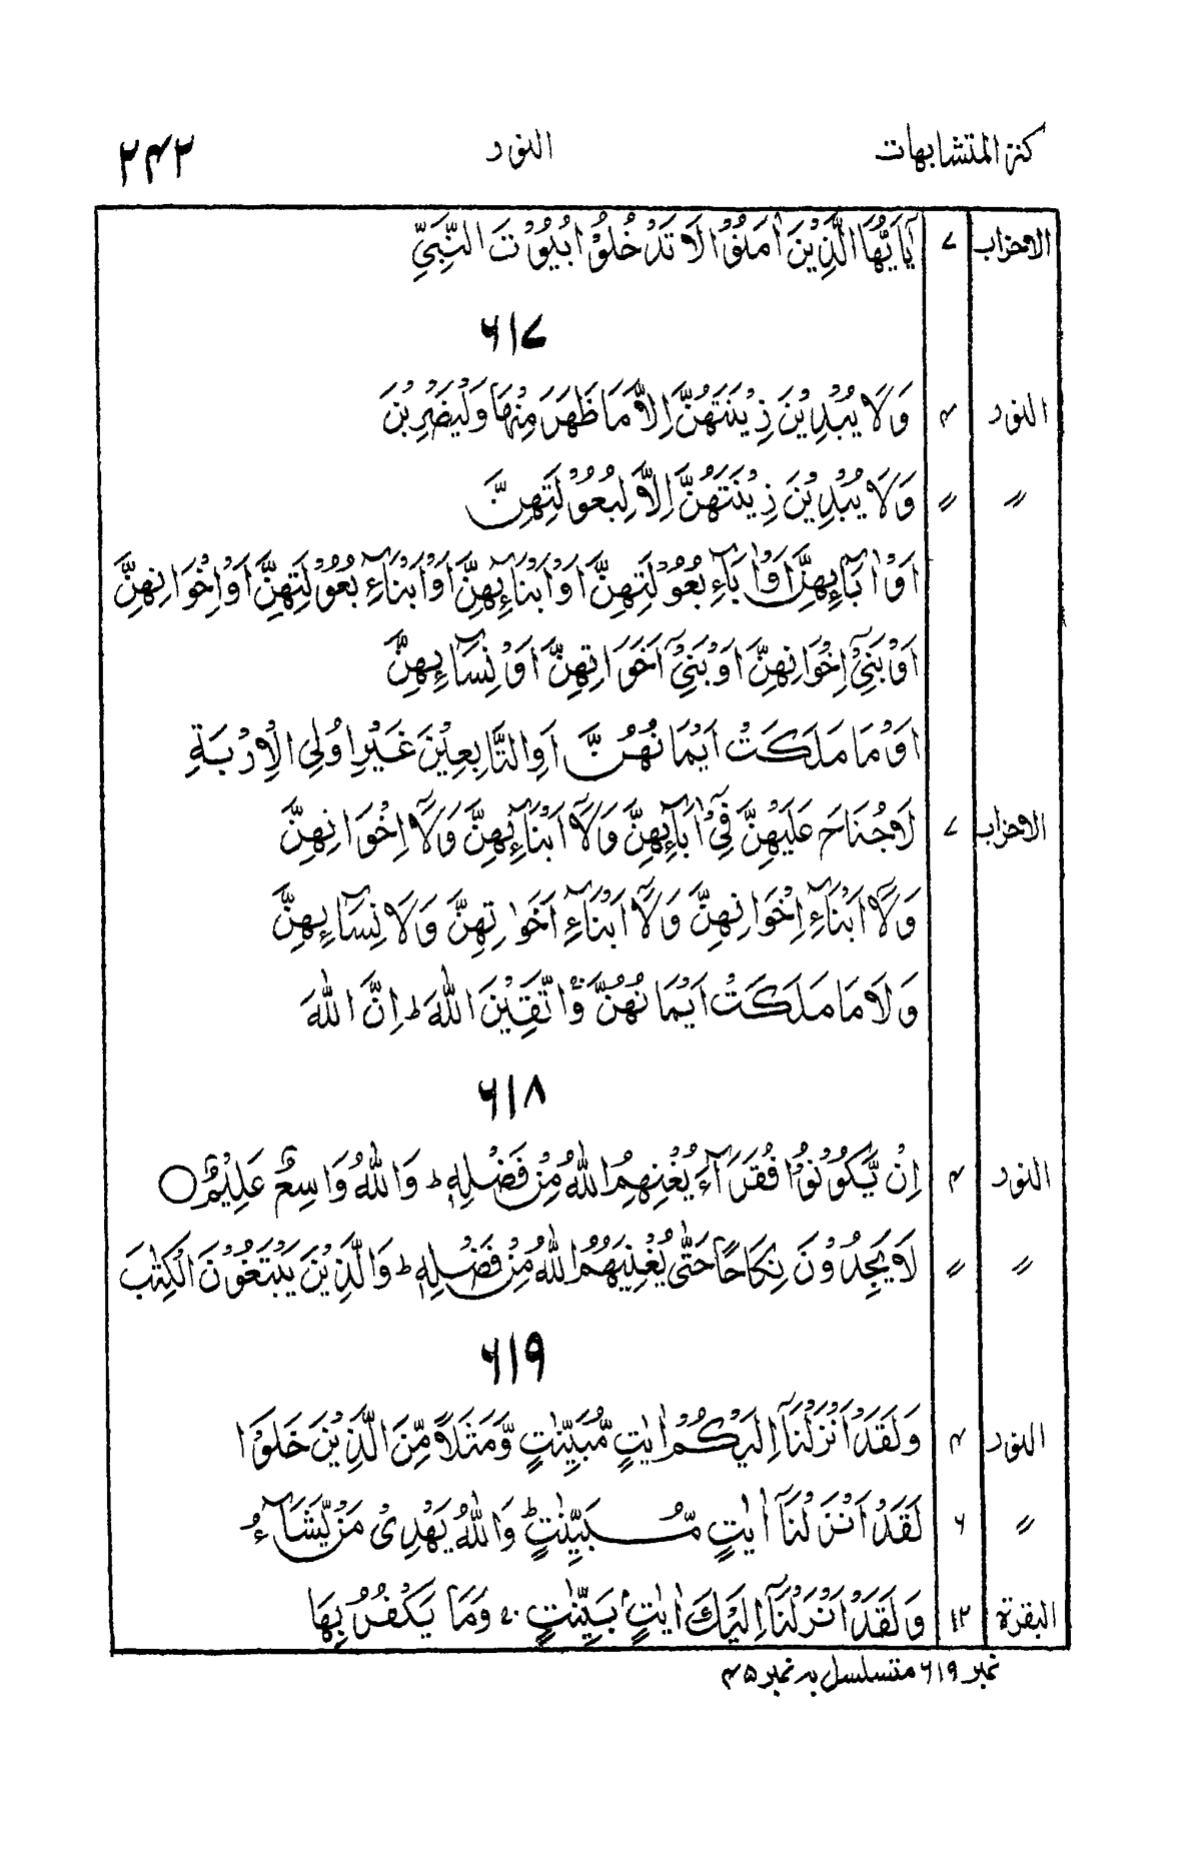 كنز المتشابهات النور ٢٤٢
الاحزاب ٧ يٰٓاَيُّهَا الَّذِيْنَ اٰمَنُوْا لَا تَدْخُلُوْا بُيُوْتَ النَّبِيِّ
٦١٧
النور ۴ وَلَا يُبْدِيْنَ زِيْنَتَهُنَّ اِلَّا مَا ظَهَرَ مِنْهَا وَلْيَضْرِبْنَ
〃 〃 وَلَا يُبْدِيْنَ زِيْنَتَهُنَّ اِلَّا لِبُعُوْلَتِهِنَّ
اَوْ اٰبَآئِهِنَّ اَوْ اٰبَآءِ بُعُوْلَتِهِنَّ اَوْ اَبْنَآئِهِنَّ اَوْ اَبْنَآءِ بُعُوْلَتِهِنَّ اَوْ اِخْوَانِهِنَّ
اَوْ بَنِيْٓ اِخْوَانِهِنَّ اَوْ بَنِيْٓ اَخَوَاتِهِنَّ اَوْ نِسَآئِهِنَّ
اَوْ مَا مَلَكَتْ اَيْمَانُهُنَّ اَوِ التَّابِعِيْنَ غَيْرِ اُولِي الْاِرْبَةِ
الاحزاب ٧ لَا جُنَاحَ عَلَيْهِنَّ فِيْٓ اٰبَآئِهِنَّ وَلَآ اَبْنَآئِهِنَّ وَلَآ اِخْوَانِهِنَّ
وَلَآ اَبْنَآءِ اِخْوَانِهِنَّ وَلَآ اَبْنَآءِ اَخَوٰتِهِنَّ وَلَا نِسَآئِهِنَّ
وَلَا مَا مَلَكَتْ اَيْمَانُهُنَّ وَاتَّقِيْنَ اللّٰهَ ؕ اِنَّ اللّٰهَ
٦١٨
النور ۴ اِنْ يَّكُوْنُوْا فُقَرَآءَ يُغْنِهِمُ اللّٰهُ مِنْ فَضْلِهٖ ؕ وَاللّٰهُ وَاسِعٌ عَلِيْمٌ ○
〃 〃 لَا يَجِدُوْنَ نِكَاحًا حَتّٰى يُغْنِيَهُمُ اللّٰهُ مِنْ فَضْلِهٖ ؕ وَالَّذِيْنَ يَبْتَغُوْنَ الْكِتٰبَ
٦١٩
النور ۴ وَلَقَدْ اَنْزَلْنَآ اِلَيْكُمْ اٰيٰتٍ مُّبَيِّنٰتٍ وَّمَثَلًا مِّنَ الَّذِيْنَ خَلَوْا
〃 ٦ لَقَدْ اَنْزَلْنَآ اٰيٰتٍ مُّبَيِّنٰتٍ ؕ وَاللّٰهُ يَهْدِيْ مَنْ يَّشَآءُ
البقرة ١٢ وَلَقَدْ اَنْزَلْنَآ اِلَيْكَ اٰيٰتٍۭ بَيِّنٰتٍ ۚ وَمَا يَكْفُرُ بِهَا
نمبر ٦١٩ متسلسل بہ نمبر ۴۵